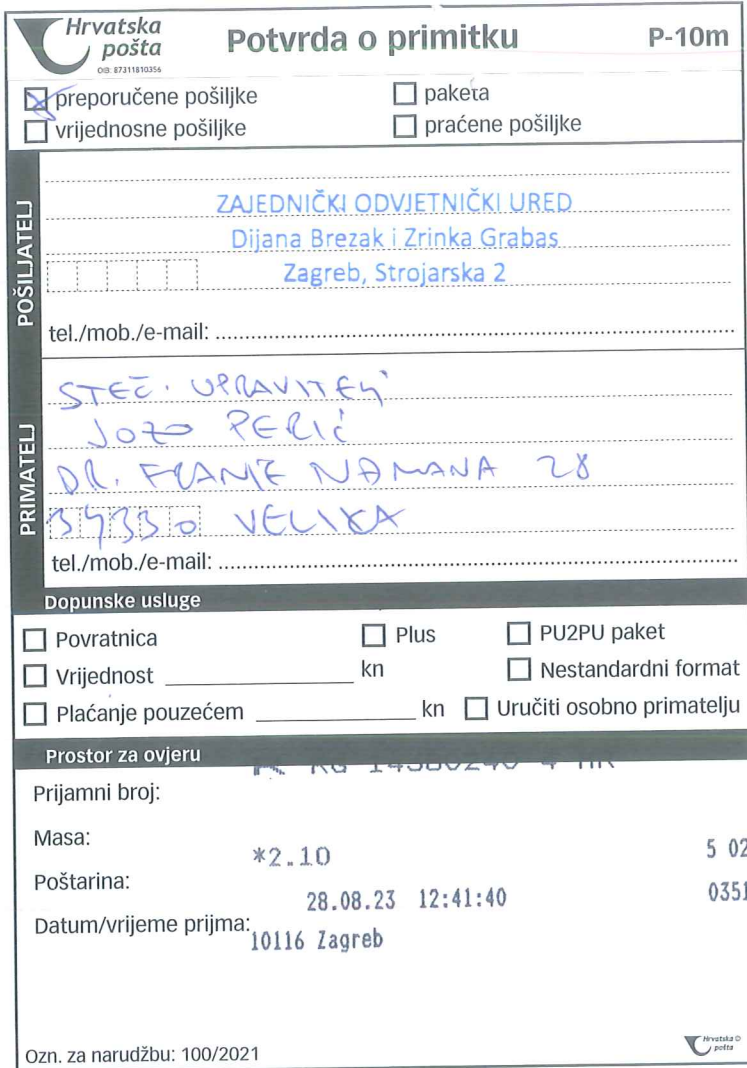 Hrvatska pošta
OIB: 87311810356
Potvrda o primitku
P-10m
preporučene pošiljke
paketa
vrijednosne pošiljke
praćene pošiljke
POŠILJATELJ
ZAJEDNIČKI ODVJETNIČKI URED
Dijana Brezak i Zrinka Grabas
Zagreb, Strojarska 2
tel./mob./e-mail:
PRIMATELJ
STEČ. UPRAVITELJ
JOZO PERIĆ
DR. FRANJE 28
34330 VELIKA
tel./mob./e-mail:
Dopunske usluge
Povratnica
Plus
PU2PU paket
Vrijednost kn
Nestandardni format
Plaćanje pouzećem kn
Uručiti osobno primatelju
Prostor za ovjeru
Prijamni broj:
Masa:
*2.10
5 02
Poštarina:
28.08.23 12:41:40
0351
Datum/vrijeme prijma:
10116 Zagreb
Ozn. za narudžbu: 100/2021
Hrvatska pošta